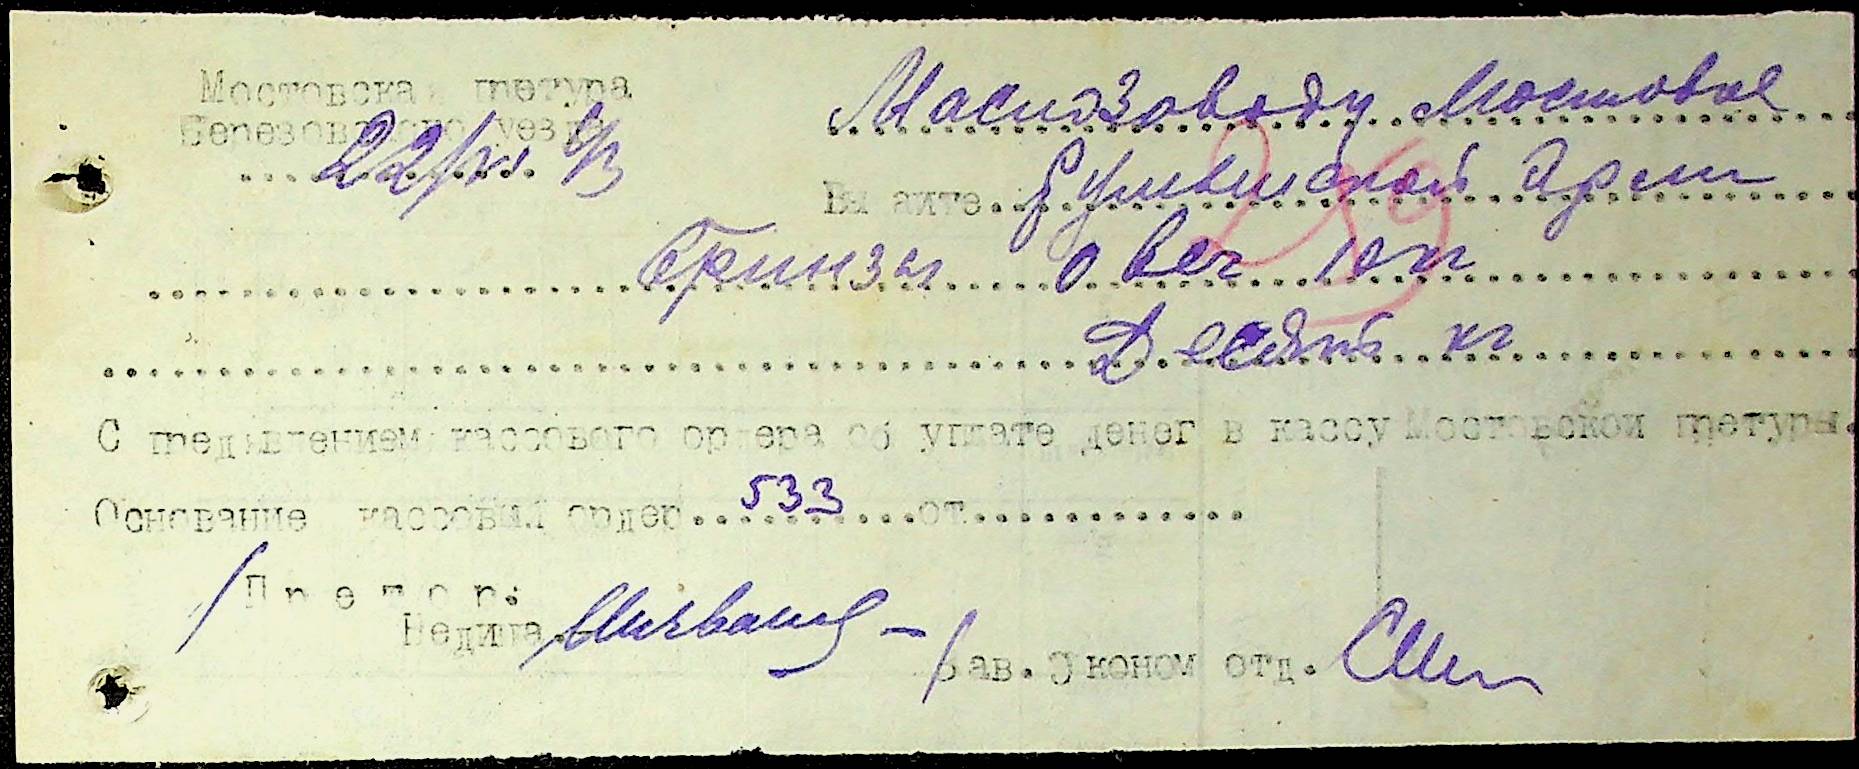 Мостовска претура
Березовского уезда
22/VI 43
Маслозаводу Мостовое
Выдайте. Румынской Арми
Бринзы овеч 10 кг
Десять кг
С предъявлением кассового ордера об уплате денег в кассу Мостовской претуры.
Основание кассовый ордер 533 от
Претор:
Недица
Зав. Эконом отд.